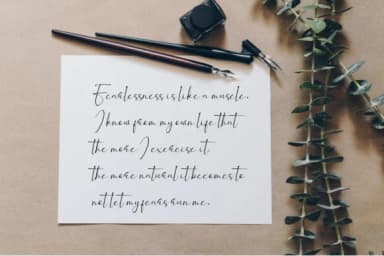 Fearlessness is like a muscle.
I know from my own life that
the more I exercise it
the more natural it becomes to
not let my fears run me.